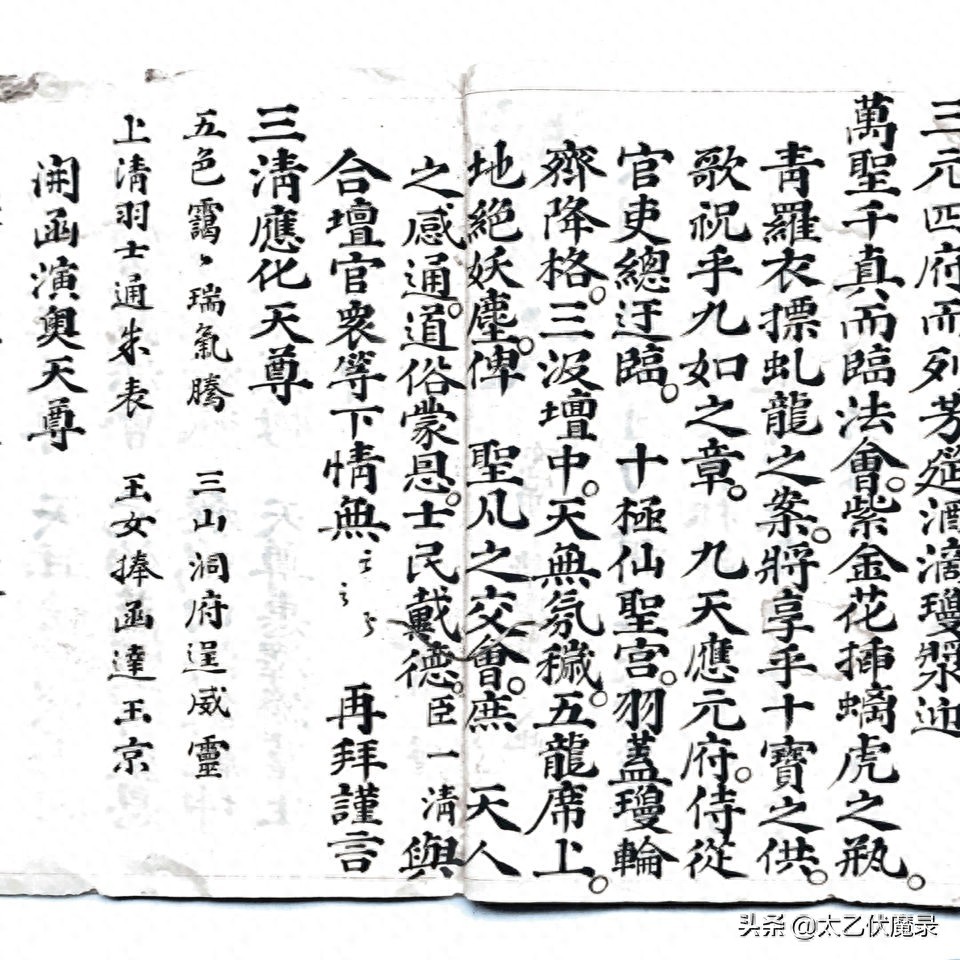 三元四府而列芳筵酒滴瓊漿迎
萬聖千真而臨法會。紫金花插螭虎之瓶。
青羅衣摽虬龍之案。將享乎十寶之供。
歌祝乎九如之章。九天應元府。侍從
官吏總迂臨。十極仙聖宮。羽蓋瓊輪
齊降格。三汲壇中。天無氛穢。五龍席上。
地絕妖塵。俾 聖凡之交會。庶 天人
之感通。道俗蒙恩。士民戴德。臣一清與
合壇官衆等下情無〻〻〻 再拜謹言
三清應化天尊
五色靄〻瑞氣騰 三山洞府逞威靈
上清羽士通朱表 玉女捧函達玉京
開函演奧天尊
头条 @太乙伏魔录